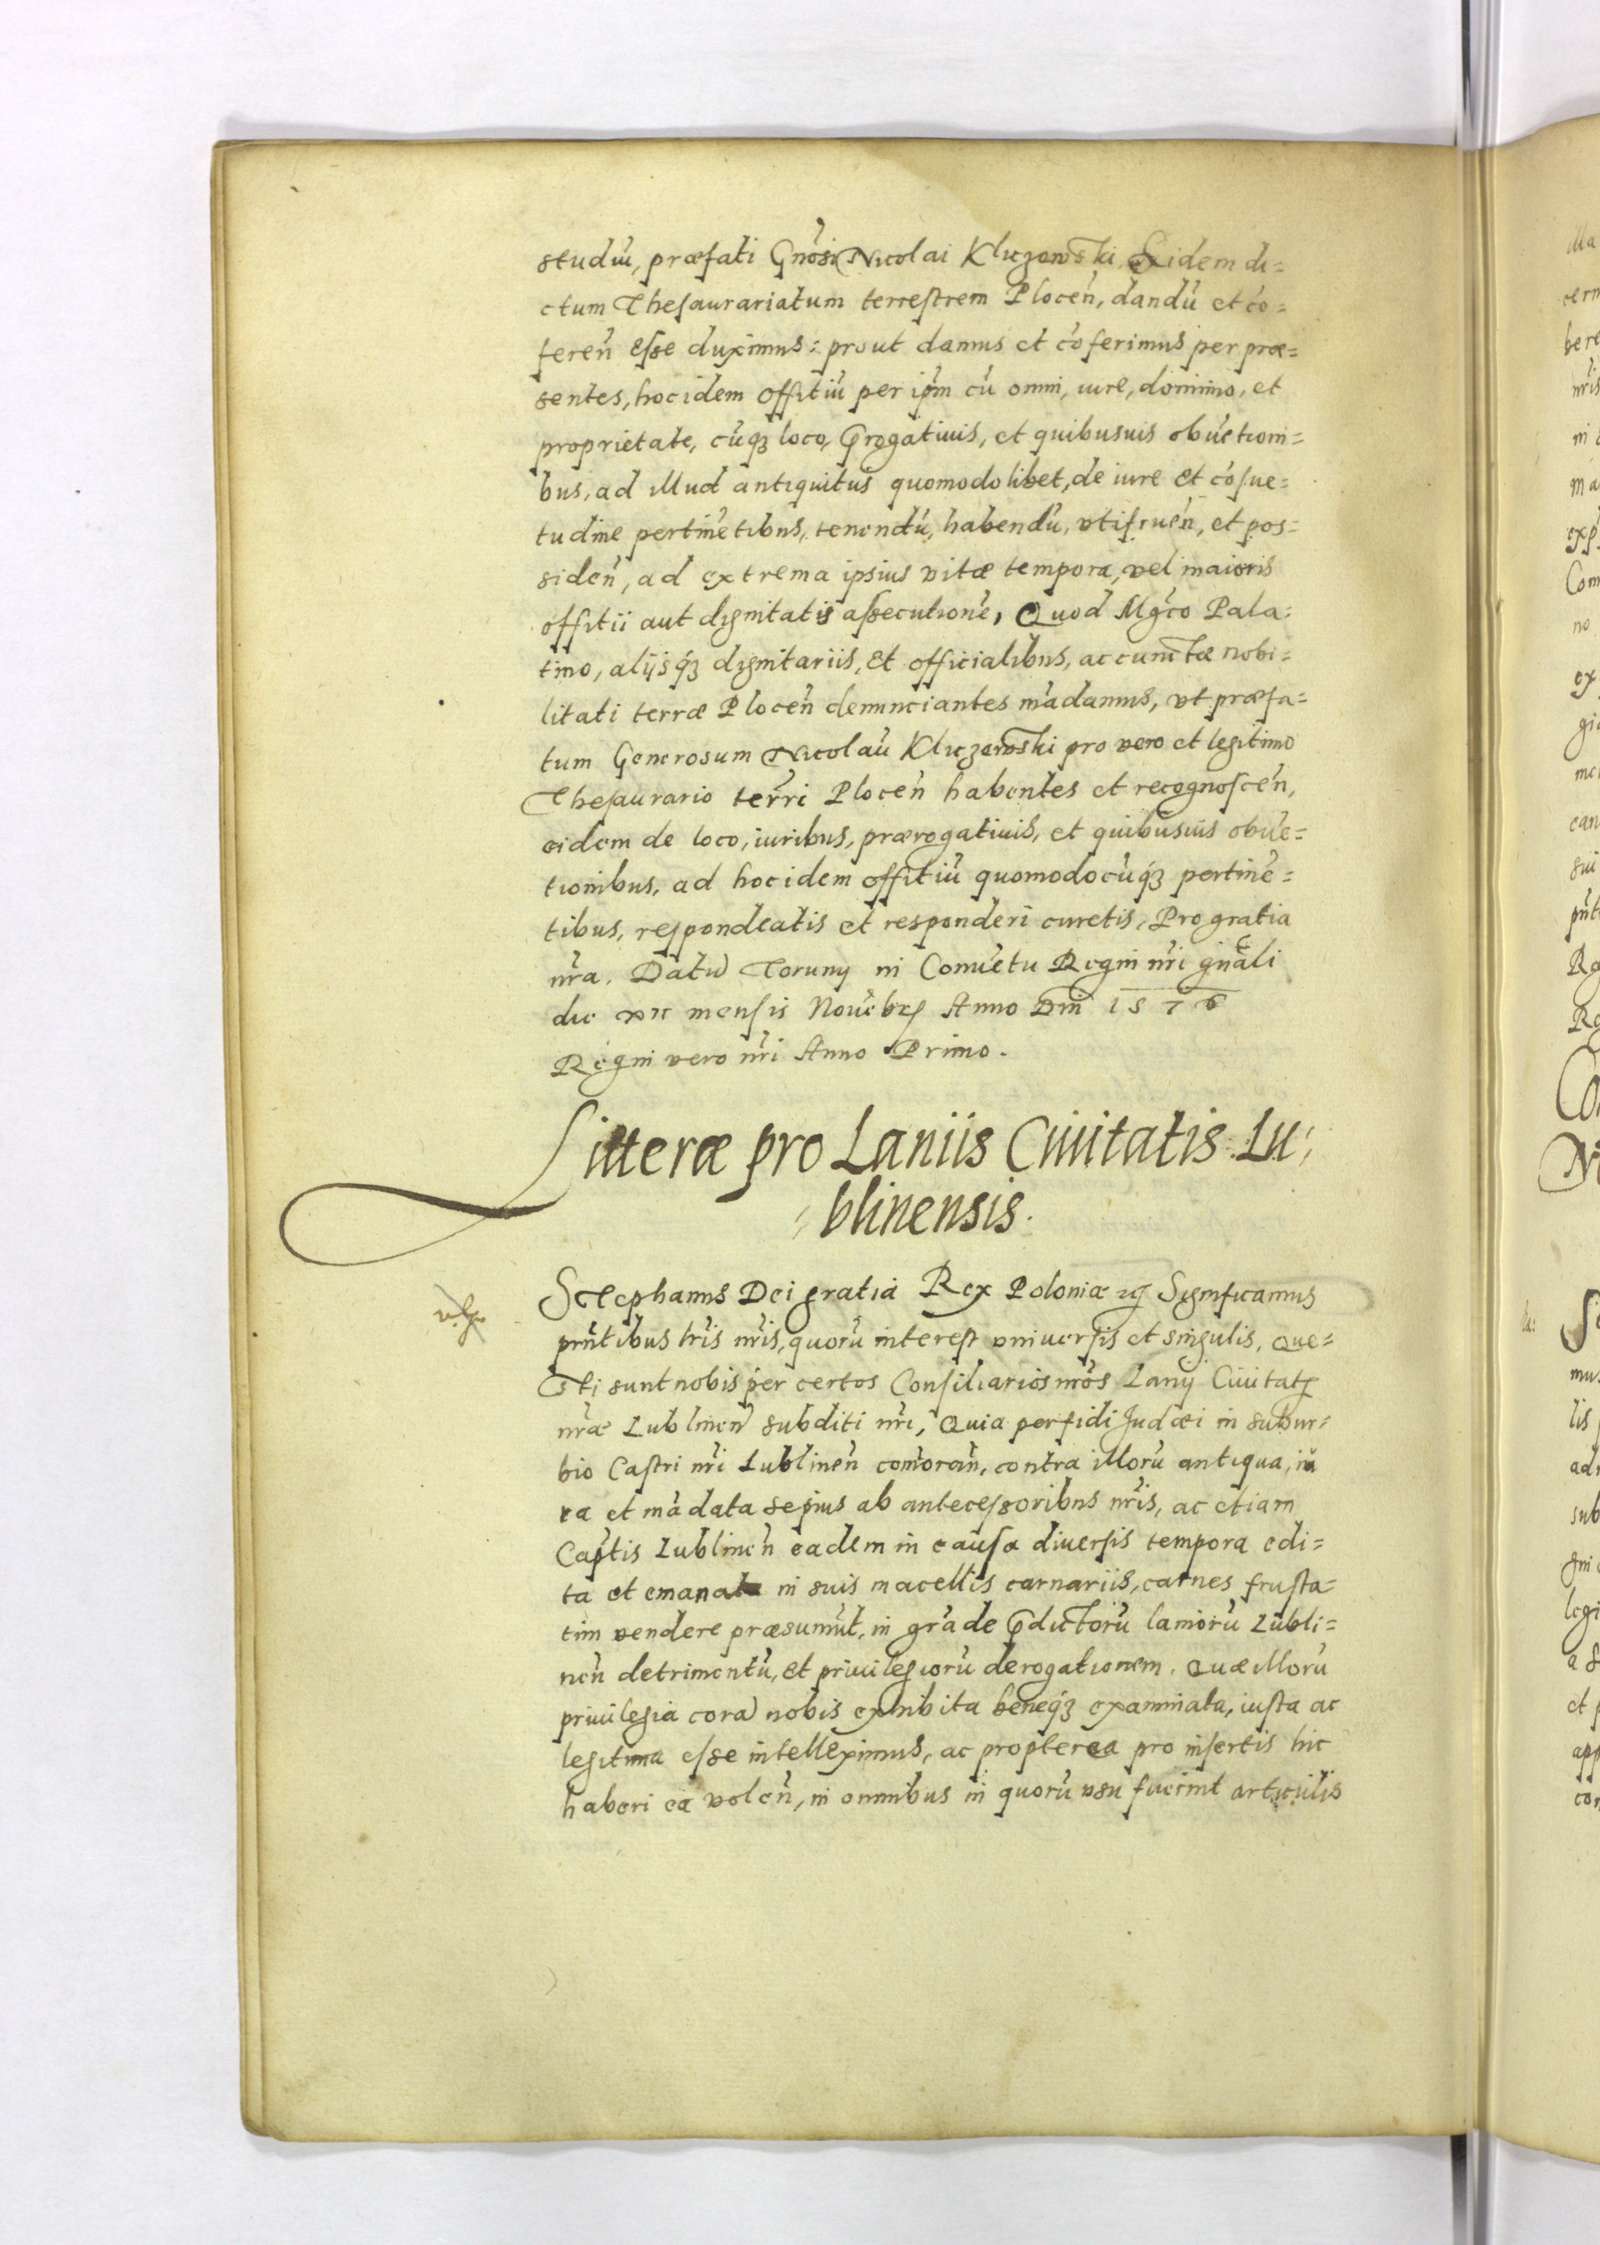 studiū, præfati Gnōsi Nicolai Kliczewski, Eidem di=
ctum Thesaurariatum terrestrem Plocen̄, dandū et cō=
feren̄ esse duximus: prout damus et cōferimus per præ=
sentes, hoc idem offitiū per ip̄m cū omni, iure, dominio, et
proprietate, cūqȝ loco, p̄rogatiuis, et quibusuis obuētioni=
bus, ad illud antiquitus quomodolibet, de iure et cōsue=
tudine pertinētibus, tenendū, habendū, vtifruen̄, et pos=
siden̄, ad extrema ipsius vitæ tempora, vel maioris
offitii aut dignitatis assecutionē, Quod Mg̅co Pala=
tino, alijsqȝ dignitariis, et officialibus, ac cunctæ nobi=
litati terræ Plocen̄ denunciantes mādamus, vt præfa=
tum Generosum Nicolaū Kliczewski pro vero et legitimo
Thesaurario terr̄i Plocen̄ habentes et recognoscen̄,
eidem de loco, iuribus, prærogatiuis, et quibusuis obuē=
tionibus, ad hoc idem offitiū quomodocūqȝ pertinē=
tibus, respondeatis et responderi curetis, Pro gratia
nr̄a. Datū Toruny in Conuētu Regni nr̄i gn̄ali
die mensis Nouēbrꝭ Anno Dn̄i 1576
Regni vero nr̄i Anno Primo.
Litteræ pro Laniis Ciuitatis Lu=
blinensis.
Stephanus Dei gratia Rex Poloniæ ꝛc̄ Significamus
pn̄tibus lr̄is nr̄is, quorū interest vniuersis et singulis, Que=
sti sunt nobis per certos Consiliarios nr̄os Lanij Ciuitatꝭ
nr̄æ Lublinen̄ subditi nr̄i, Quia perfidi Judæi in subur=
bio Castri nr̄i Lublinen̄ com̄oran̄, contra illorū antiqua, iu
ra et mādata sepius ab antecessoribus nr̄is, ac etiam
Cap̄tis Lublinen̄ eadem in causa diuersis tempora edi=
ta et emanata in suis macellis carnariis, carnes frusta=
tim vendere præsumūt, in grāde p̄dictorū laniorū Lubli=
nen̄ detrimentū, et priuilegiorū derogationem. Quæ illorū
priuilegia corā nobis exhibita beneqȝ examinata, iusta ac
legitima esse intelleximus, ac propterea pro insertis hic
haberi ea volen̄, in omnibus in quorū vsu fuerint articulis